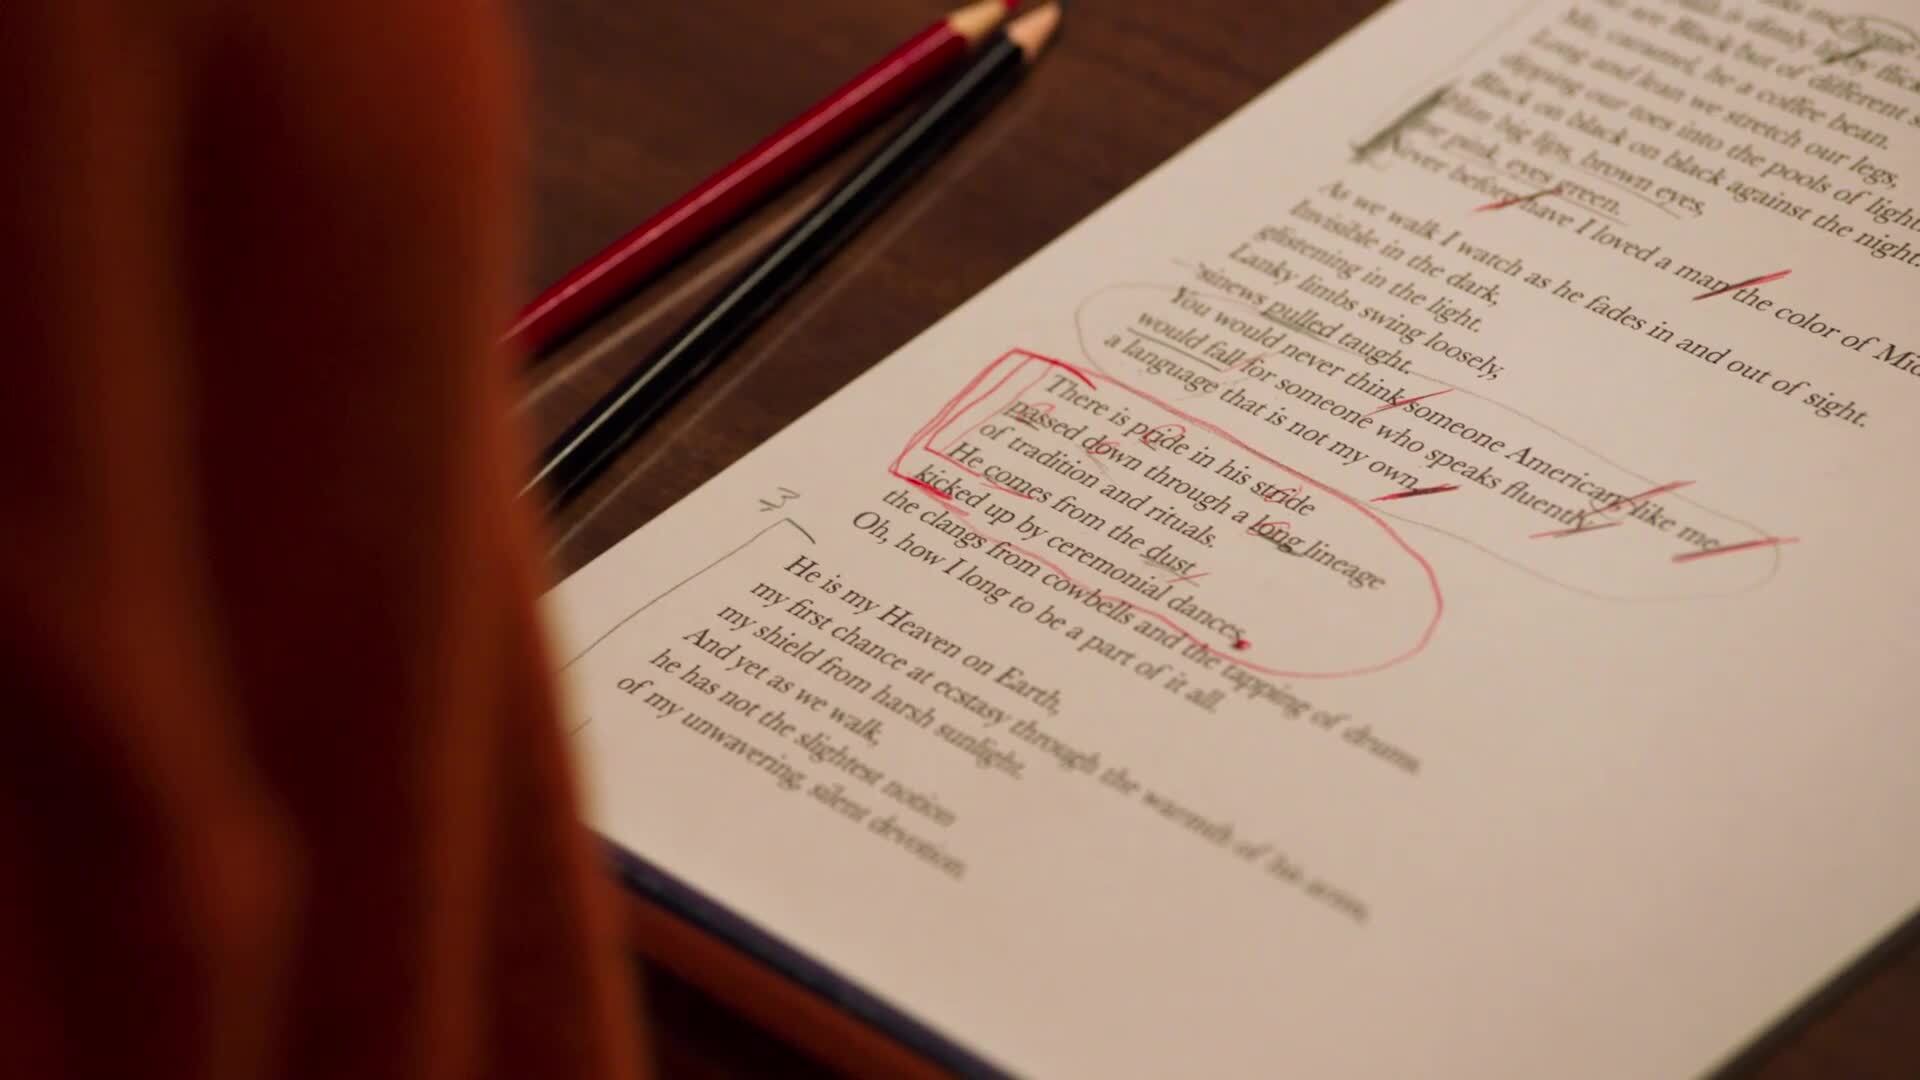 is dimly lit by
are Black but of different
Me, caramel, he a coffee bean.
Long and lean we stretch our legs,
dipping our toes into the pools of light
Black on black on black against the night.
big lips, brown eyes,
pink, eyes green.
Never before have I loved a man the color of
As we walk I watch as he fades in and out of sight.
Invisible in the dark,
glistening in the light.
Lanky limbs swing loosely,
sinews pulled taught.
You would never think someone American, like me,
would fall for someone who speaks fluently
a language that is not my own.
There is pride in his stride
passed down through a long lineage
of tradition and rituals.
He comes from the dust
kicked up by ceremonial dances,
the clangs from cowbells and the tapping of drums.
Oh, how I long to be a part of it all.
3
He is my Heaven on Earth,
my first chance at ecstasy through the warmth of his arms,
my shield from harsh sunlight.
And yet as we walk,
he has not the slightest notion
of my unwavering, silent devotion.